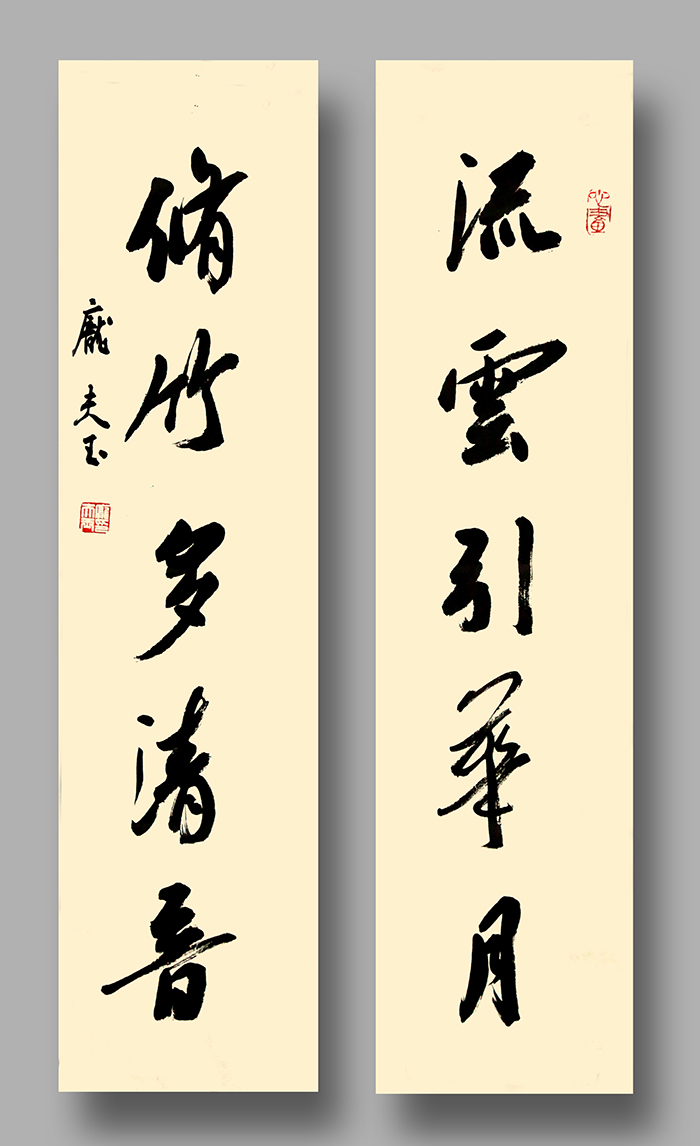 流雲引華月
脩竹多清音
龐夫玉